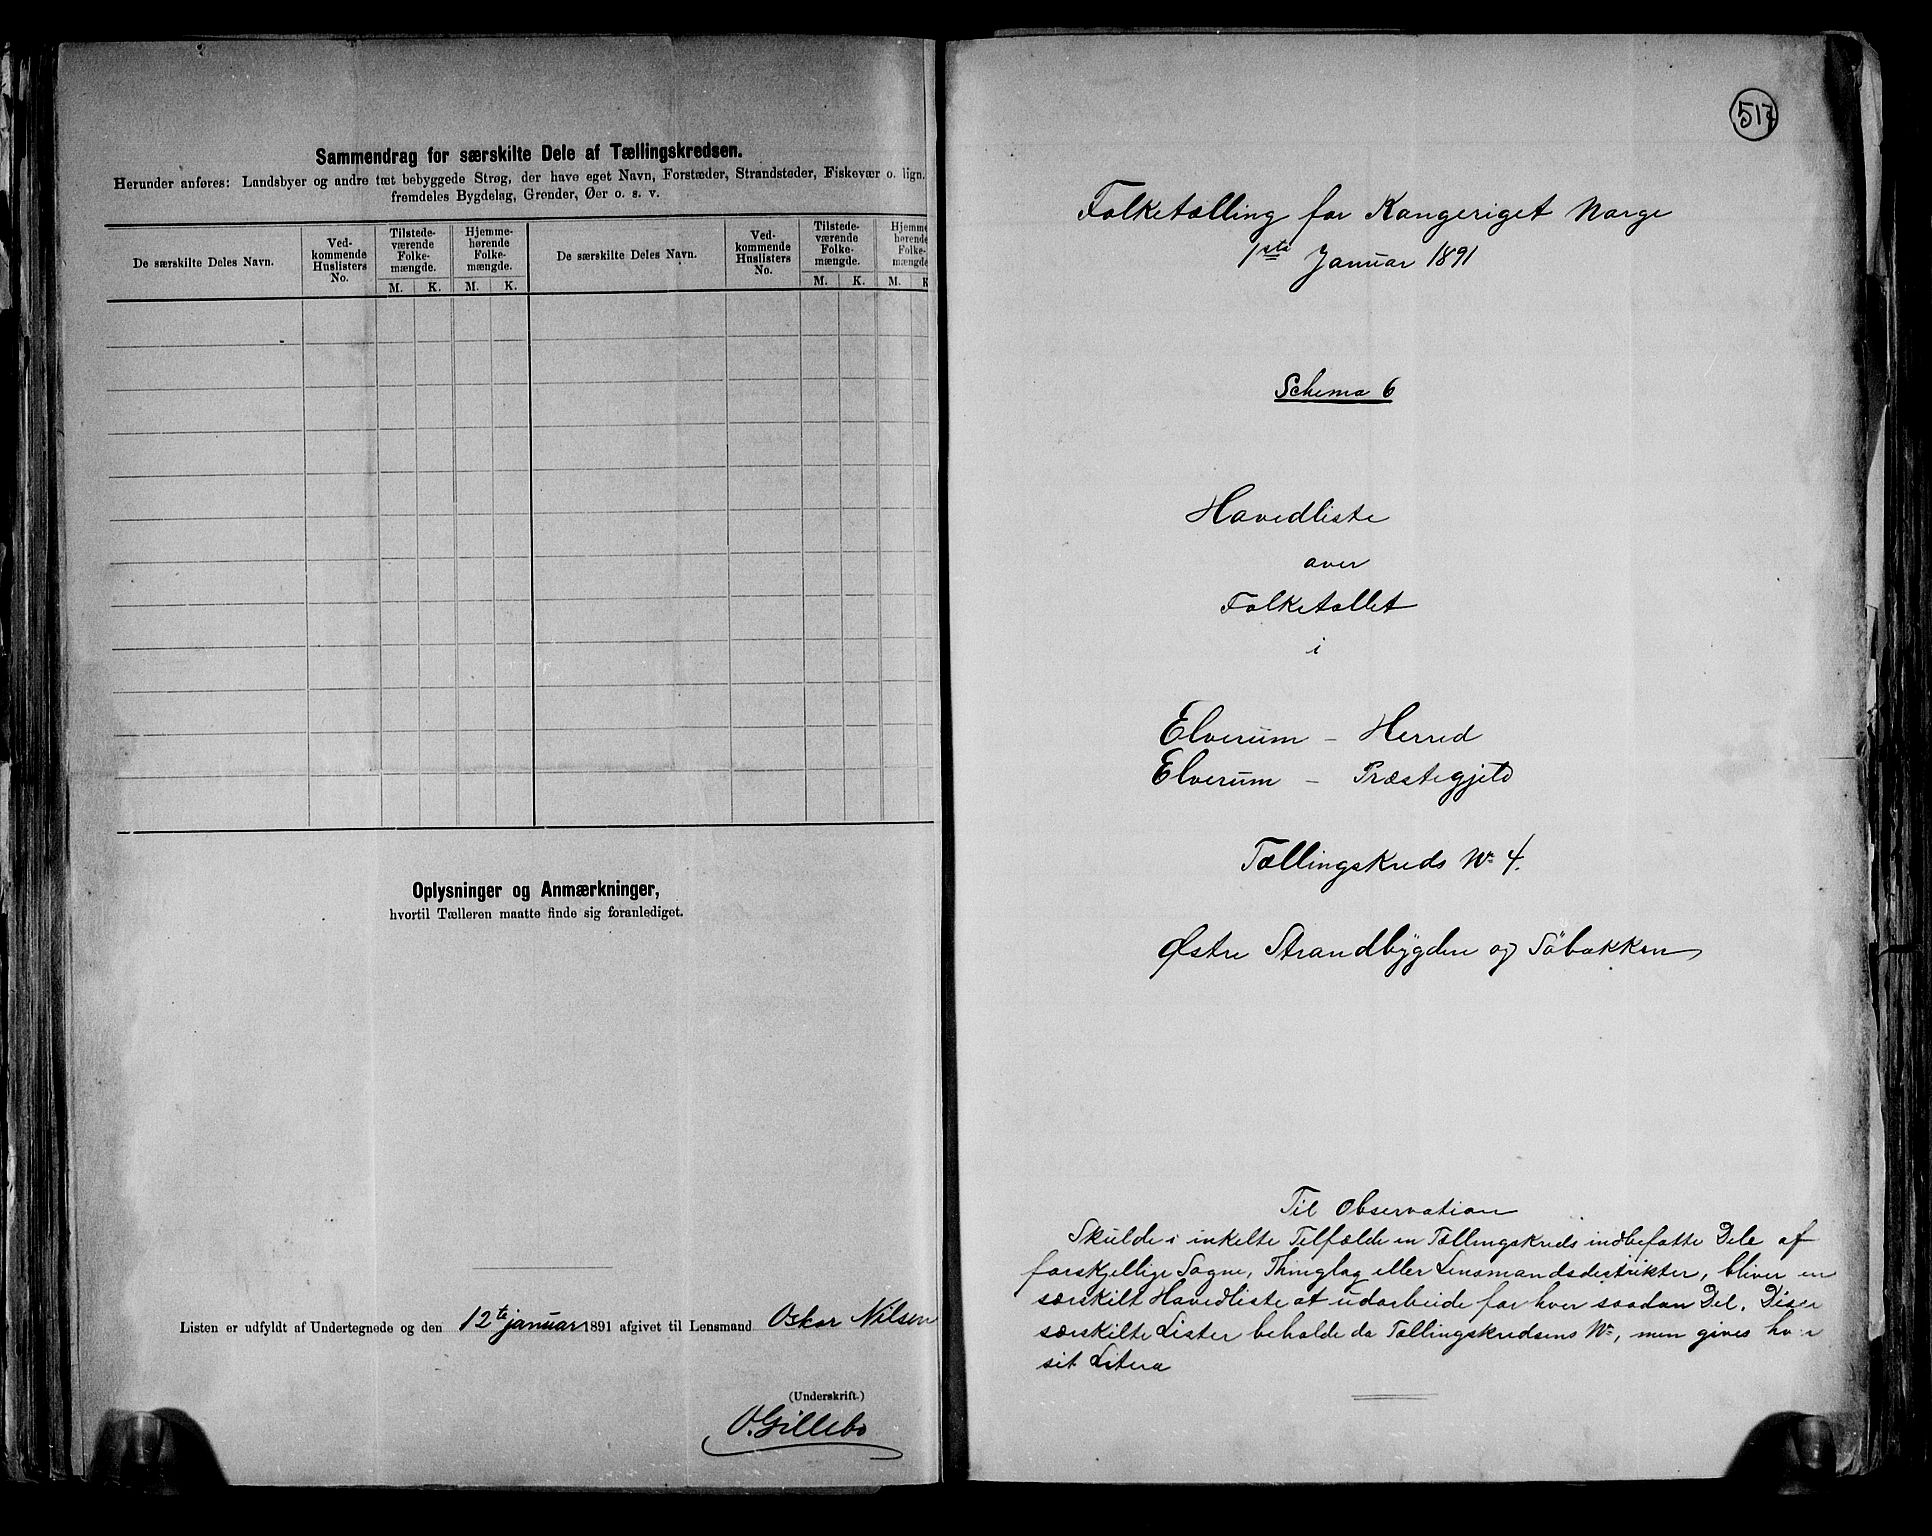 Sammendrag for særskilte Dele af Tællingskredsen.
Herunder anføres: Landsbyer og andre tæt bebyggede Strøg, der have eget Navn, Forstæder, Strandsteder, Fiskevær o. lign.
fremdeles Bygdelag, Grender, Øer o. s. v.
De særskilte Deles Navn.
Ved-
kommende
Huslisters
No.
Tilstede-
værende
Folke-
mængde.
Hjemme-
hørende
Folke-
mængde.
De særskilte Deles Navn.
Ved-
kommende
Huslisters
No.
Tilstede-
værende
Folke-
mængde.
Hjemme-
hørende
Folke-
mængde
M. K. M. K. M. K. M. K
Oplysninger og Anmærkninger,
hvortil Tælleren maatte finde sig foranlediget.
Listen er udfyldt af Undertegnede og den 12te januar 1891 afgivet til Lensmand Oskar Nilsen
(Underskrift.)
O. Gillebo
517
Folketælling for Kongeriget Norge
1ste Januar 1891
Schema 6
Hovedliste
over
Folketallet
i
Elverum - Herred
Elverum - Præstegjeld
Tællingskreds No 4.
Østre Strandbygden og Söbakken
Til Observation
Skulde i enkelte Tilfælde en Tællingskreds indbefatte Dele af
forskjellige Sogne, Thinglag eller Lensmandsdistrikter, bliver en
særskilt Hovedliste at udarbeide for hver saadan Del. Disse
særskilte Lister beholde da Tællingskredsens No, men gives hver
sit Litera